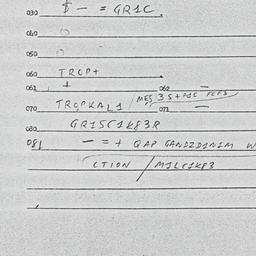 030 $ - = GR1C
040
050
060 TROP+
061 + 062 -
070 TROPKAL1 / MES 3 S + P1C
071 -
080 GR1SC1K83R
081 - = + QAP GANDZD1N1M W
CTION / M1LC1K83